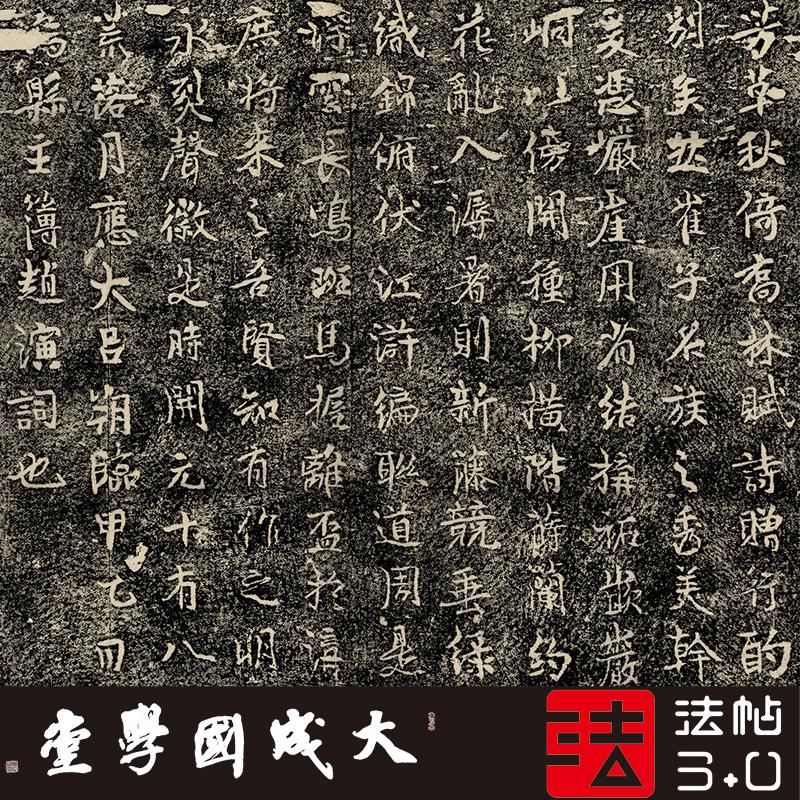 芳草秋倚喬林賦詩贈行酌
別矣崔子名族之秀美幹
爰憑巖崖用省結搆巖
峒以傍開種柳橫階蒔蘭約
花亂入溽暑則新藤競垂綠
織錦俯伏江滸編聯道周是
浮雲長鳴班馬握離盃於
庶將來之吾賢知有作之明
永裂聲徽是時開元十有八
荒落月應大呂朔臨甲乙
縣主簿趙演詞也
大成國學堂
法
法帖
3.0